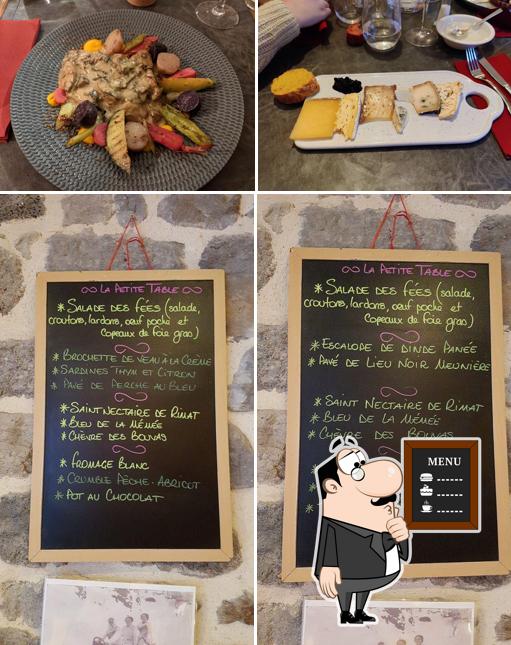 ∞ LA PETITE TABLE ∞
* SALADE DES FÉES (salade,
croutons, lardons, œuf poché et
copeaux de foie gras)
* BROCHETTE DE VEAU À LA CRÈME
* SARDINES THYM ET CITRON
* PAVÉ DE PERCHE AU BLEU
* SAINT NECTAIRE DE RIMAT
* BLEU DE LA MÉMÉE
* CHÈVRE DES
* FROMAGE BLANC
* CRUMBLE PÊCHE-ABRICOT
* POT AU CHOCOLAT
∞ LA PETITE TABLE ∞
* SALADE DES FÉES (salade,
croutons, lardons, œuf poché et
copeaux de foie gras)
* ESCALOPE DE DINDE PANÉE
* PAVÉ DE LIEU NOIR MEUNIÈRE
* SAINT NECTAIRE DE RIMAT
* BLEU DE LA MÉMÉE
* CHÈVRE DES
MENU